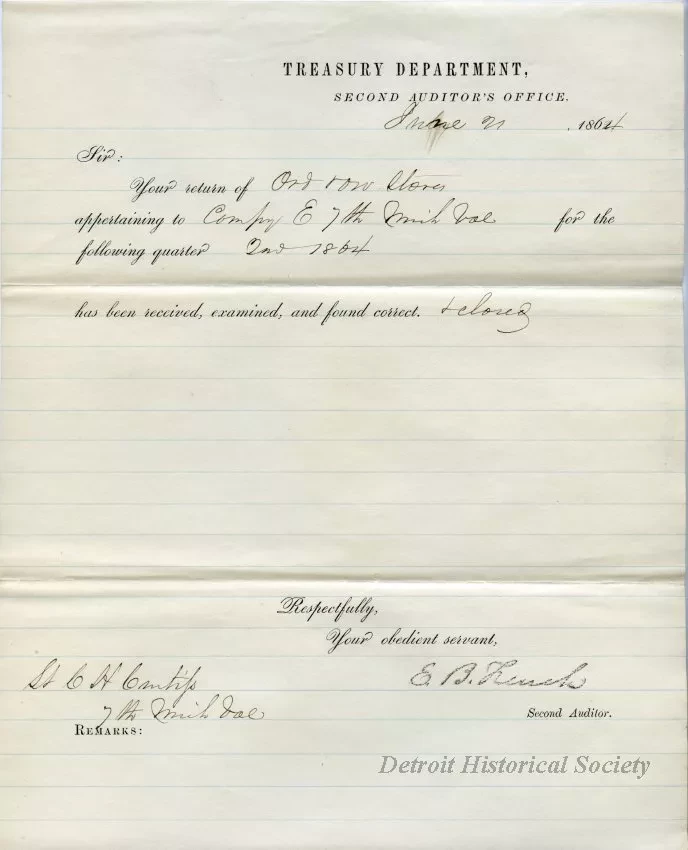 TREASURY DEPARTMENT,
SECOND AUDITOR'S OFFICE.
June 21, 1864
Sir:
Your return of Ord & Ord Stores
appertaining to Compy E 7th Mich Vol for the
following quarter 2nd 1864
has been received, examined, and found correct. & closed
Respectfully,
Your obedient servant,
Lt C H Curtiss E. B. French
7th Mich Vol Second Auditor.
REMARKS:
Detroit Historical Society